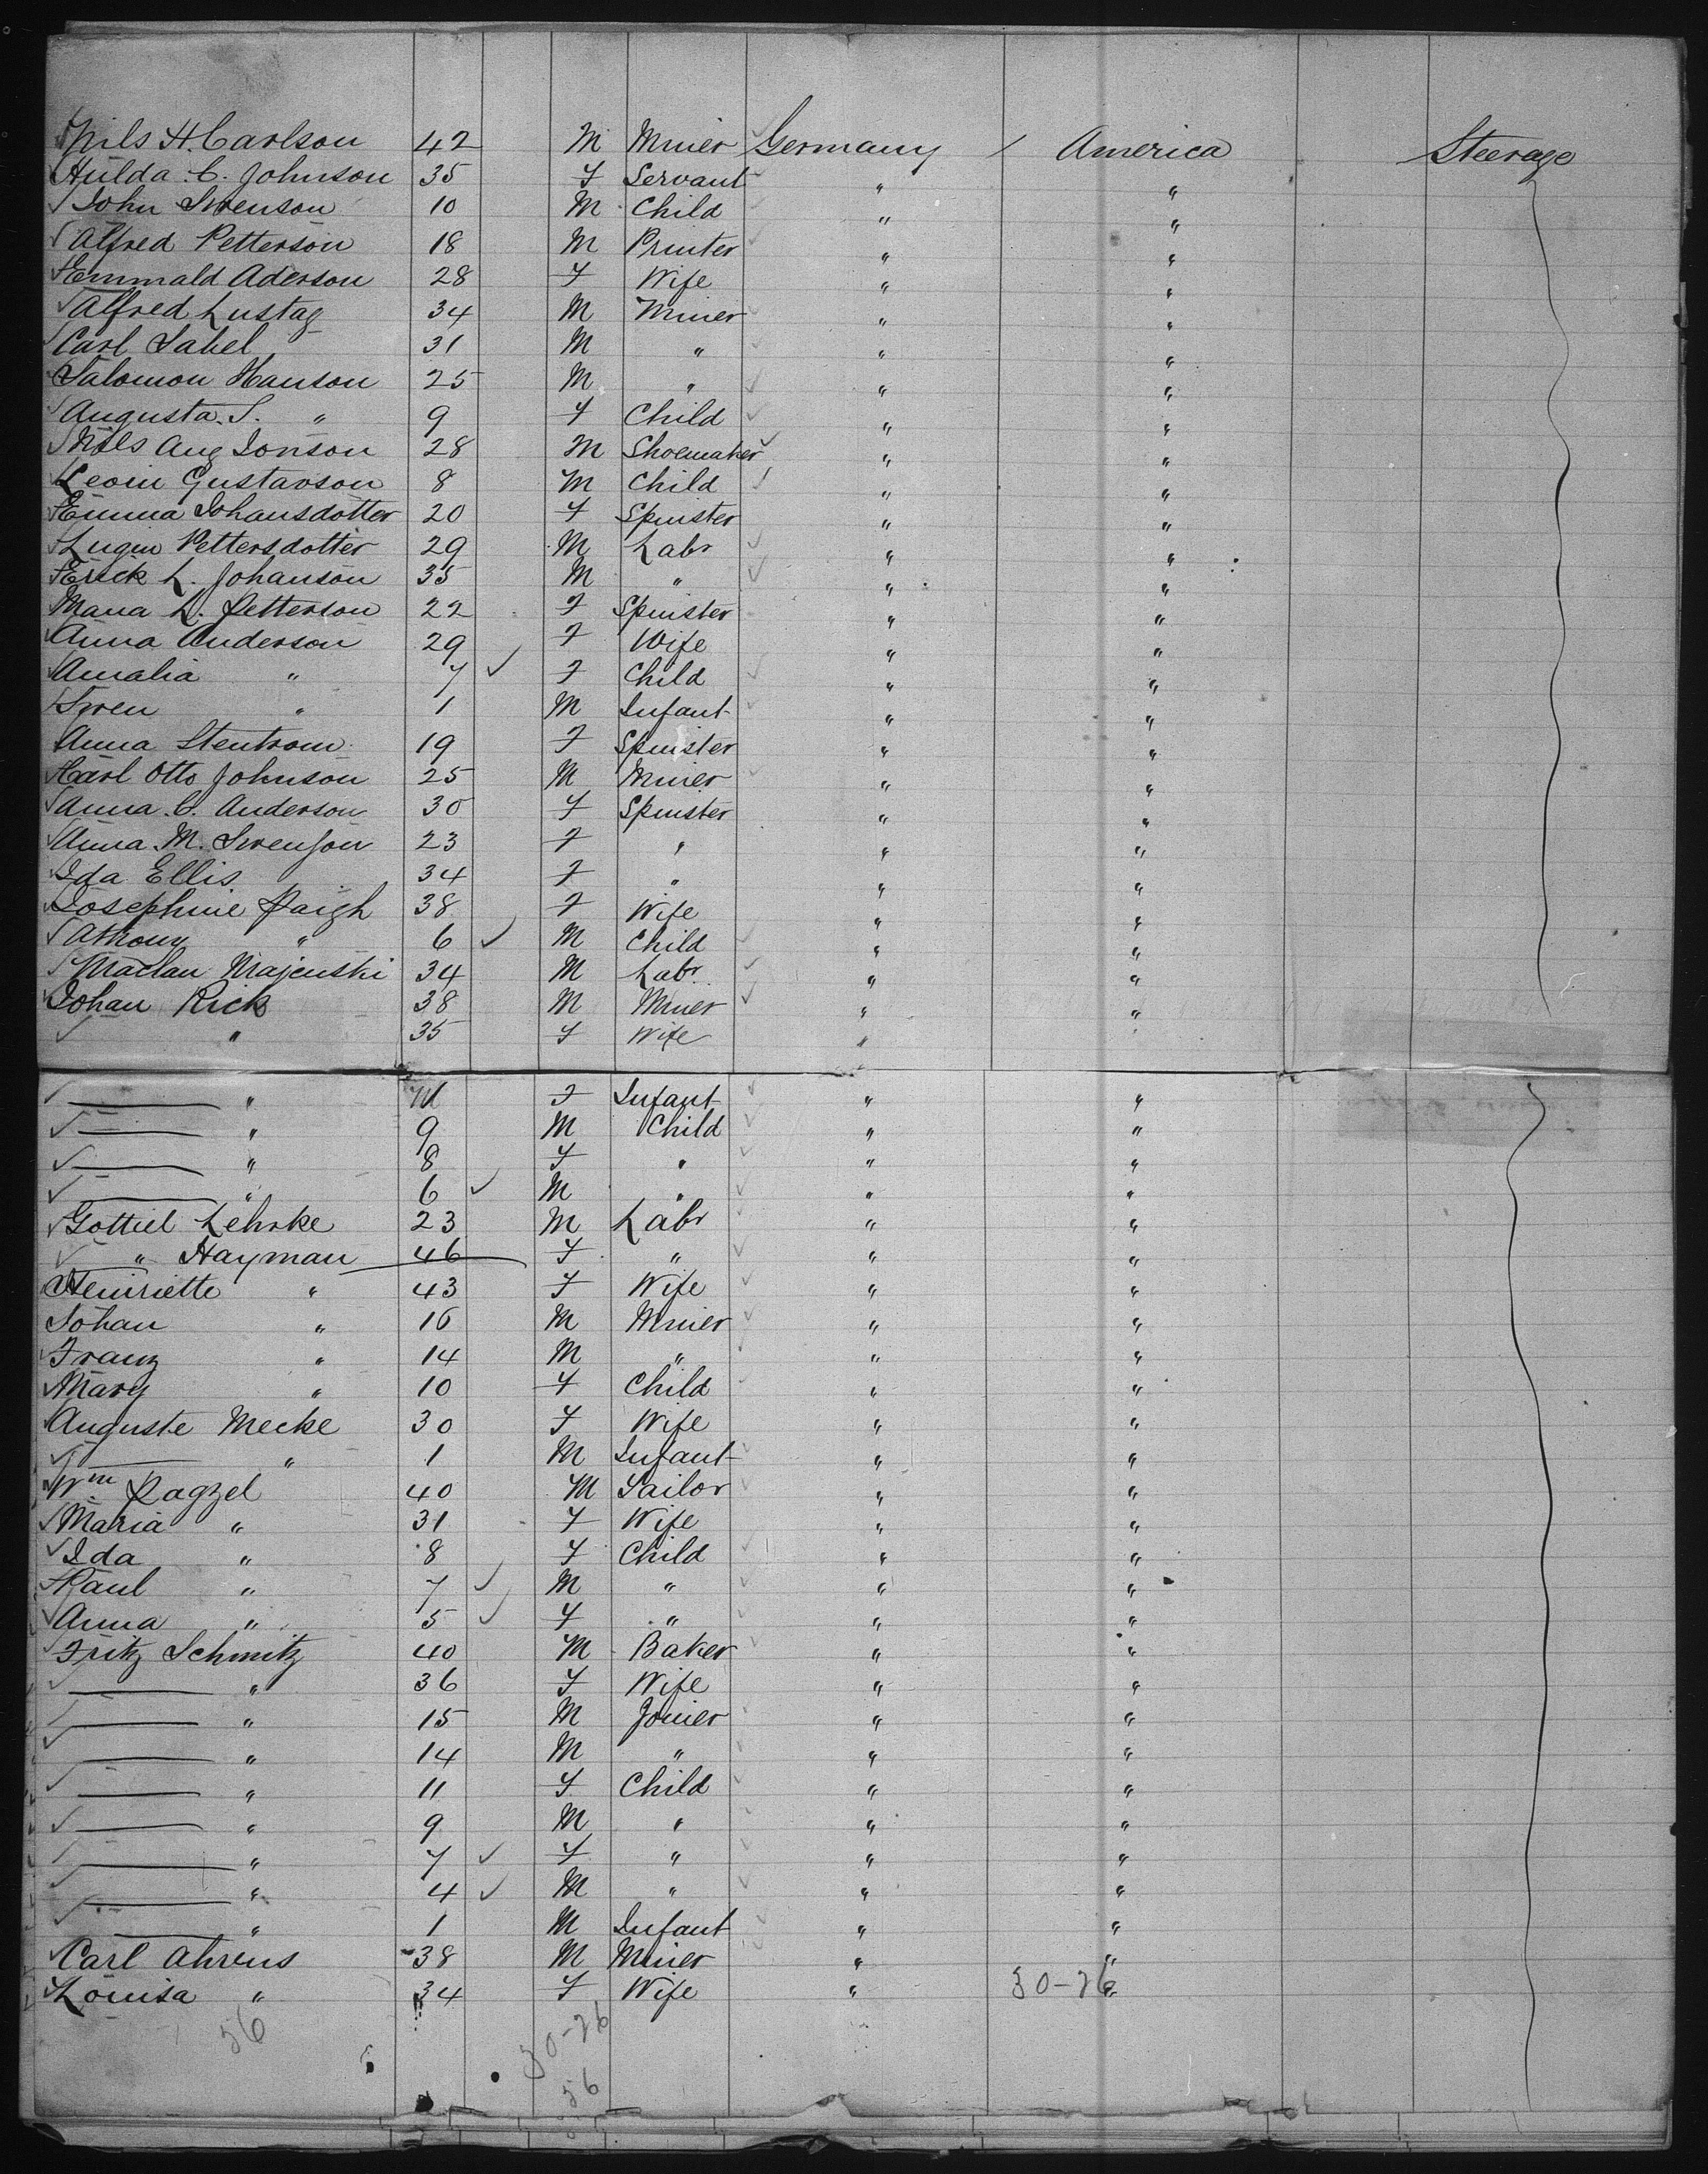 Nils H. Carlson 42 M Miner Germany / America Steerage
Hulda C. Johnson 35 F Servant " "
John Swenson 10 M Child " "
Alfred Petterson 18 M Printer " "
Emmald Aderson 28 F Wife " "
Alfred Lustag 34 M Miner " "
Carl Sabel 31 M " " "
Salomon Hanson 25 M " " "
Augusta S. " 9 F Child " "
Nils Aug Jonson 28 M Shoemaker " "
Leoin Gustavson 8 M Child " "
Emma Johansdotter 20 F Spinster " "
Lugin Pettersdotter 29 M Labr " "
Erick L. Johanson 35 M " " "
Maria L. Petterson 22 F Spinster " "
Anna Anderson 29 F Wife " "
Amalia " 7 ✓ F Child " "
Swen " 1 M Infant " "
Anna Stentrom 19 F Spinster " "
Carl Otto Johnson 25 M Miner " "
Anna C. Anderson 30 F Spinster " "
Anna M. Swenson 23 F " " "
Ida Ellis 34 F " " "
Josephine Paigh 38 F Wife " "
Athony " 6 ✓ M Child " "
Maclau Majenski 34 M Labr " "
Johan Rick 38 M Miner " "
" 35 F Wife "
— " F Infant " "
— " 9 M Child " "
— " 8 F " " "
— " 6 ✓ M " " "
Gottiel Lehrke 23 M Labr " "
" Hayman 46 F " " "
Henriette " 43 F Wife " "
Johan " 16 M Miner " "
Franz " 14 M " " "
Mary " 10 F Child " "
Auguste Mecke 30 F Wife " "
— " 1 M Infant " "
Wm Pagzel 40 M Tailor " "
Maria " 31 F Wife " "
Ida " 8 F Child " "
Paul " 7 ✓ M " " "
Anna " 5 ✓ F " " "
Fritz Schmitz 40 M Baker " "
— " 36 F Wife " "
— " 15 M Joiner " "
— " 14 M " " "
— " 11 F Child " "
— " 9 M " " "
— " 7 ✓ F " " "
— " 4 ✓ M " " "
— " 1 M Infant " "
Carl Ahrens 38 M Miner " "
Louisa " 34 F Wife " "
30-26
56 30-26
56